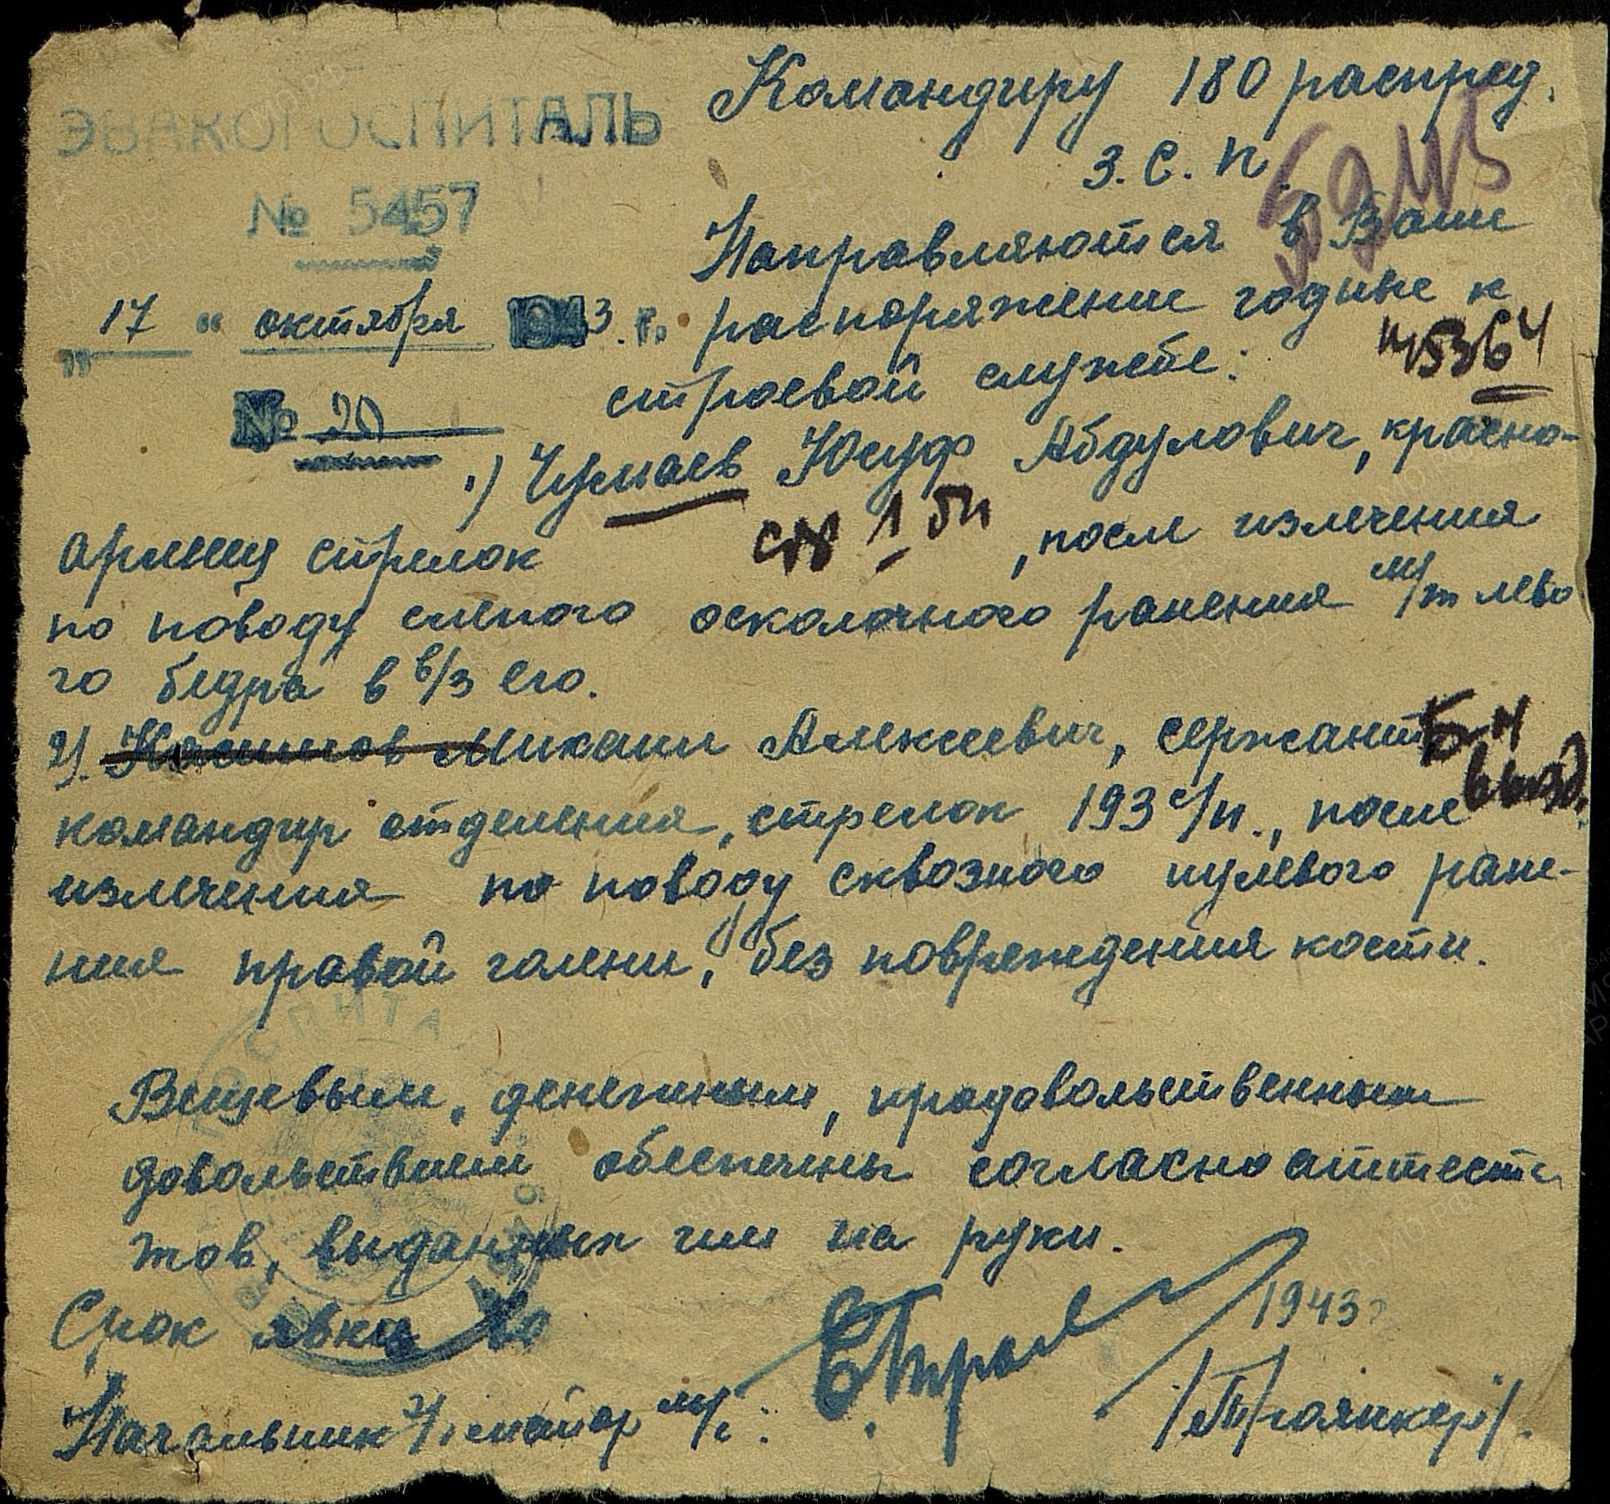 ЭВАКОГОСПИТАЛЬ
№ 5457
„ 17 “ октября 1943 г.
№ 20
Командиру 180 распред.
з. с. п.
Направляются в Ваше
распоряжение годные к
строевой службе:
15364
1) Чумаев Юсуф Абдулович, красно-
армеец стрелок , после излечения
1 бп
по поводу слепого осколочного ранения м/т лево
го бедра в в/з его.
2). Михаил Алексеевич, сержант
командир отделения, стрелок 193 с/п., после
излечения по поводу сквозного пулевого ране-
ния правой голени, без повреждения кости.
Вещевым, денежным, продовольственным
довольствием обеспечены согласно аттеста
тов, выданных им на руки.
Срок явки 1943
Начальник майор м/с: /Троянкер/.